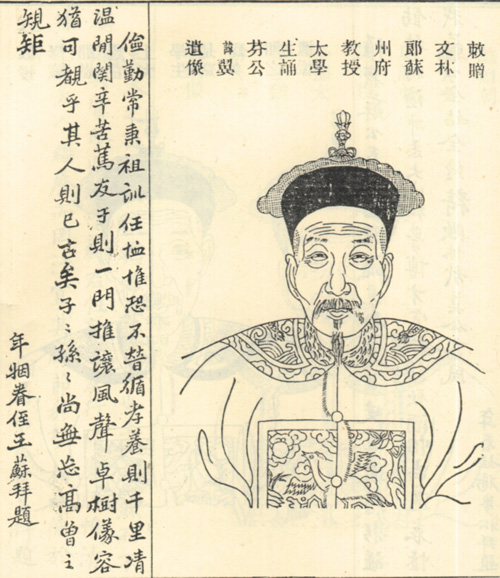 敕贈
文林
郎蘇
州府
教授
太學
生誦
芬公
諱
遺像
儉勤常秉祖訓任恤惟恐不替循孝養則千里凊
温閒関辛苦篤友于則一門推讓風聲卓樹儀容
猶可覩乎其人則已古矣子〻孫〻尚無忘高曾之
規矩
年姻眷侄王蘇拜題